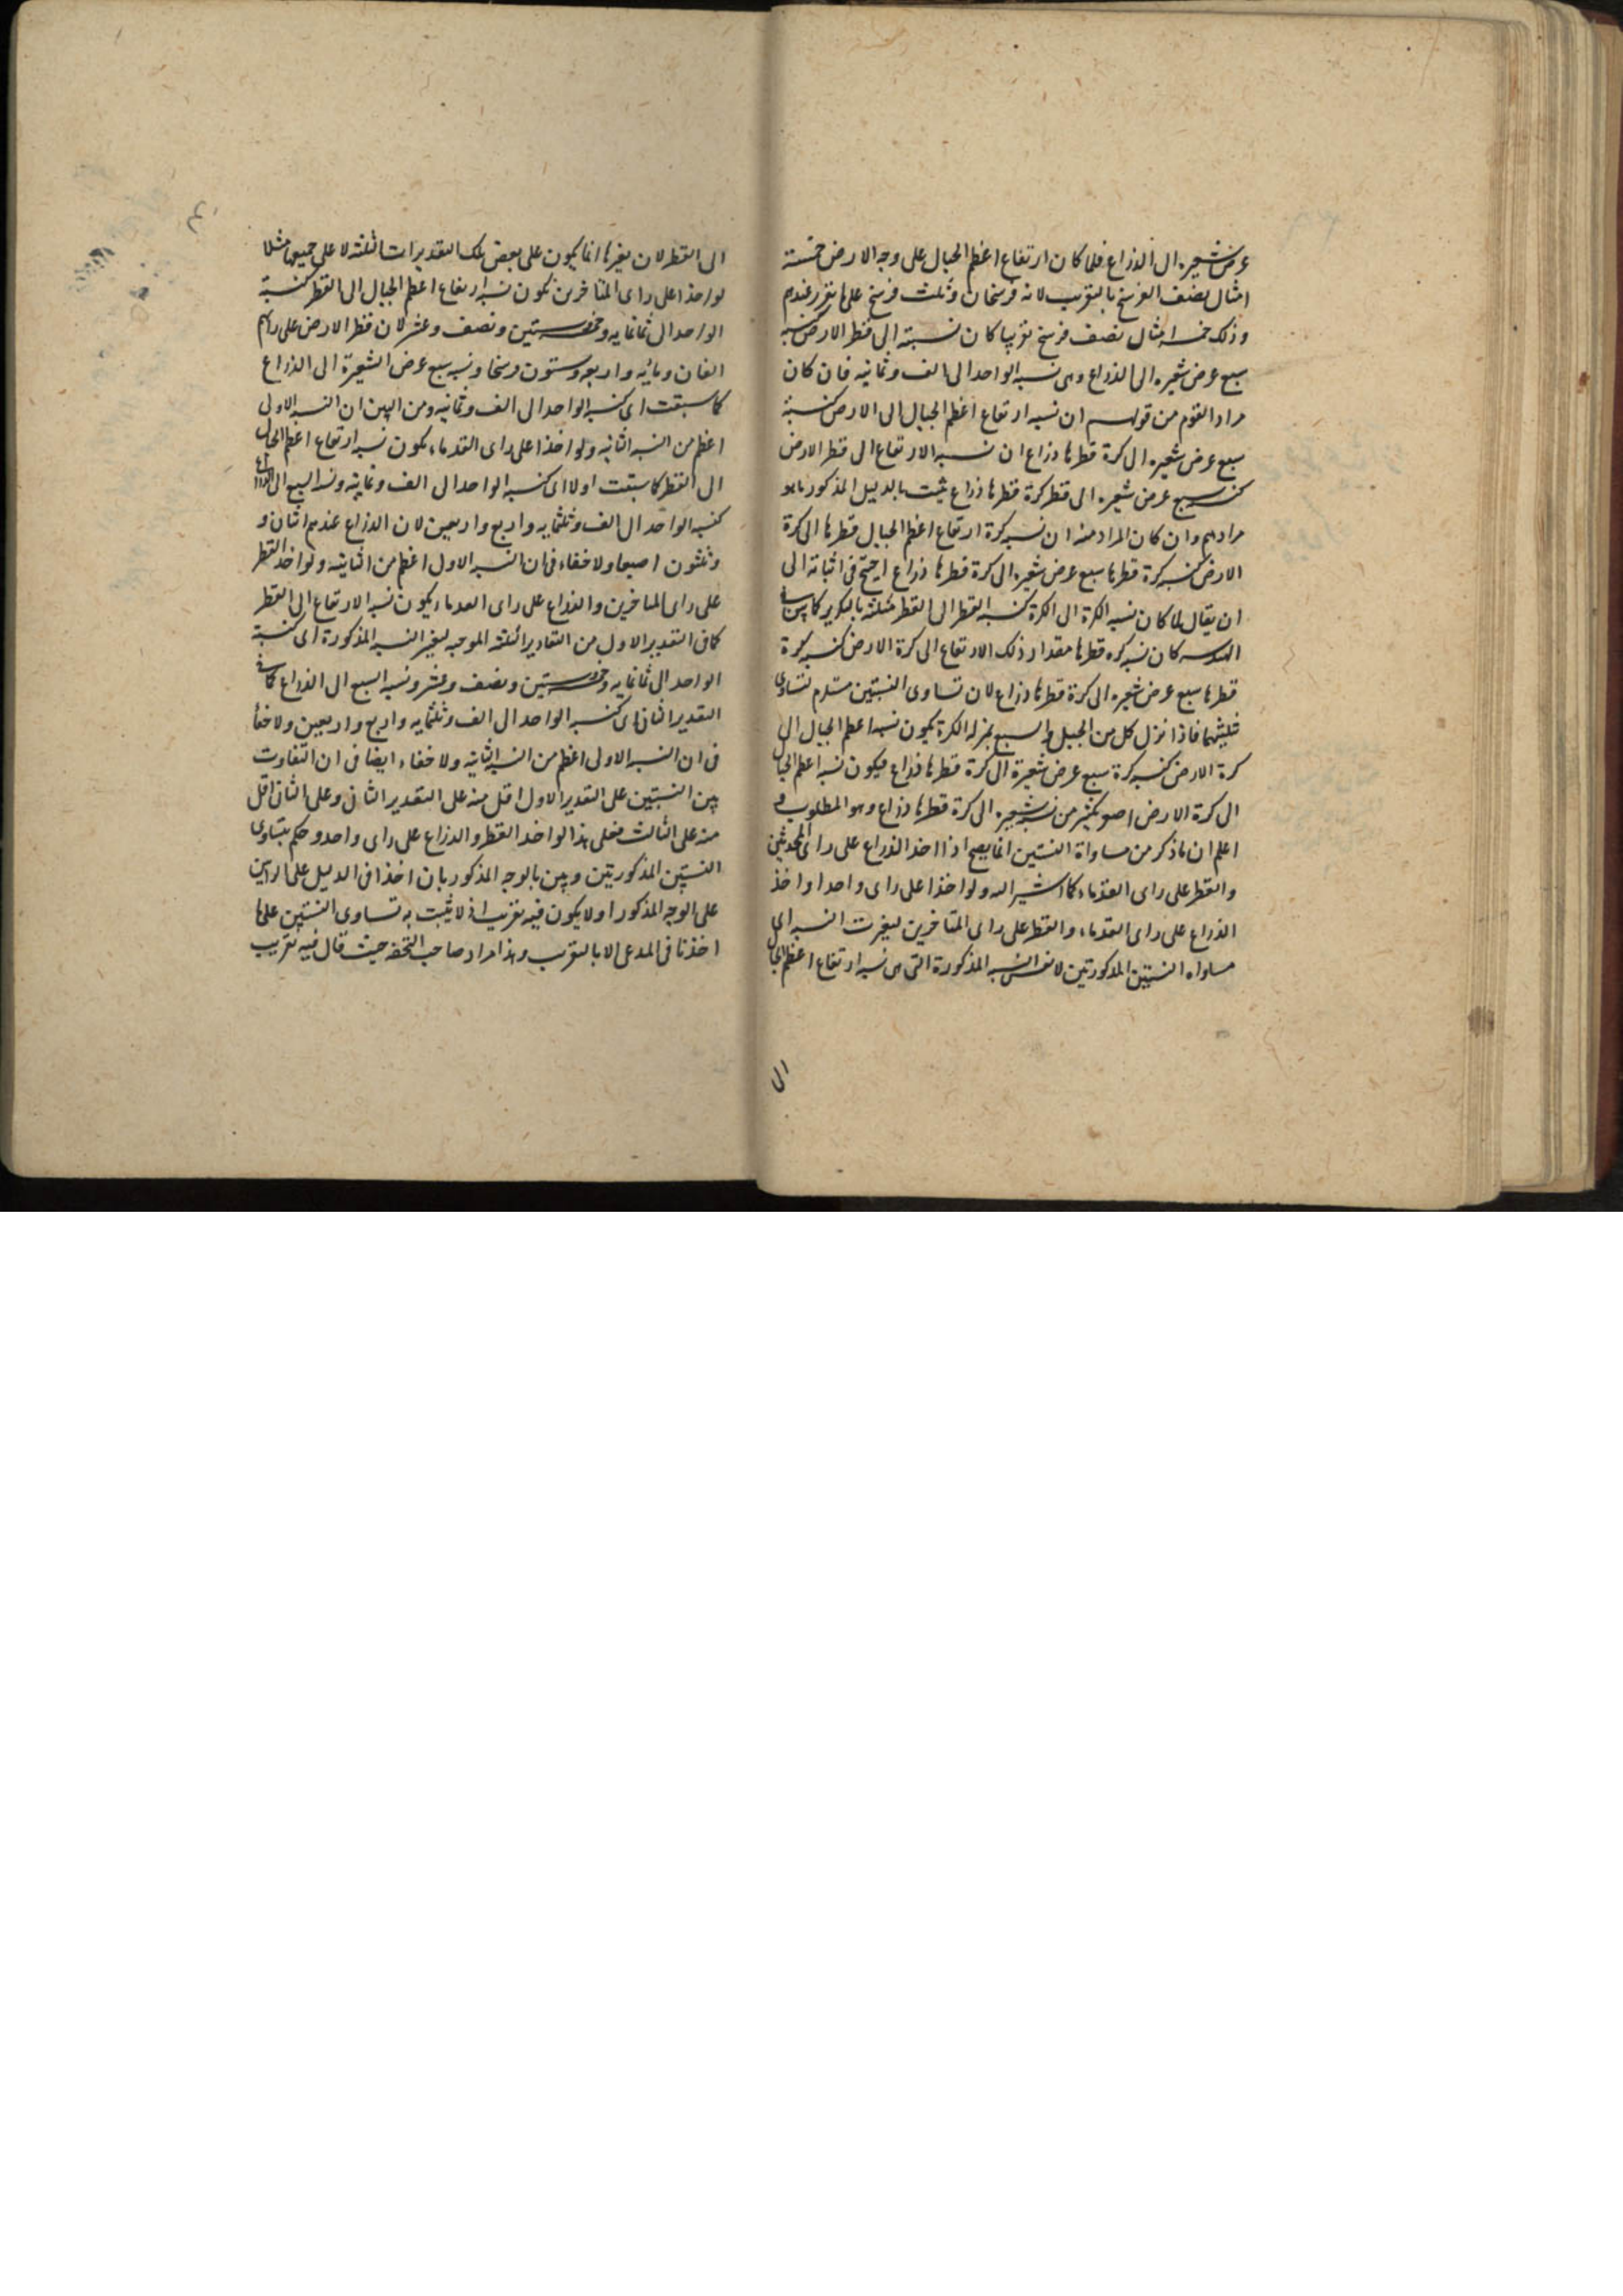 عرض شعيره الى الذراع فلما كان ارتفاع اعظم الجبال على وجه الارض خمسة
امثال نصف الفرسخ بالتقريب لانه فرسخان وثلث فرسخ على ما تقرر عندهم
وذلك خمسة امثال نصف فرسخ تقريبا كان نسبته الى قطر الارض كنسبة
سبع عرض شعيره الى الذراع وهى نسبه الواحد الى الف وثمانيه فان كان
مراد القوم من قولهم ان نسبه ارتفاع اعظم الجبال الى الارض كنسبة
سبع عرض شعيره الى كرة قطرها ذراع ان نسبه الارتفاع الى قطر الارض
كنسبه سبع عرض شعيره الى قطر كرة قطرها ذراع ثبت بالدليل المذكور ما هو
مرادهم وان كان المراد منه ان نسبه كرة ارتفاع اعظم الجبال قطرها الى كرة
الارض كنسبه كرة قطرها سبع عرض شعيره الى كرة قطرها ذراع احتج فى اثباته الى
ان يقال لما كان نسبه الكرة الى الكرة كنسبه القطر الى القطر مثلثه بالتكرير كما بين فى
الهندسه كان نسبه كره قطرها مقدار ذلك الارتفاع الى كرة الارض كنسبه كرة
قطرها سبع عرض شعيره الى كرة قطرها ذراع لان تساوى النسبتين مستلزم لتساوى
مثلثيهما فاذا نزل كل من الجبل والسبع بمنزله الكرة يكون نسبه اعظم الجبال الى
كرة الارض كنسبه كرة سبع عرض شعيرة الى كرة قطرها ذراع فيكون نسبه اعظم الجبال
الى كرة الارض اصغر بكثير من نسبه شعيره الى كرة قطرها ذراع وهو المطلوب و
اعلم ان ما ذكر من مساواة النسبتين انما يصح اذا اخذ الذراع على راى المحدثين
والقطر على راى القدماء كما اشير اليه ولو اخذا على راى واحد او اخذ
الذراع على راى القدماء والقطر على راى المتاخرين لتغيرت النسبه اى
مساواه النسبتين المذكورتين لا نفس النسبه المذكورة التى هى نسبه ارتفاع اعظم الجبال
الى
الى القطر لان تغيرها انما يكون على بعض تلك التقديرات الثلثه لا على جميعها مثلا
لو اخذا على راى المتاخرين تكون نسبه ارتفاع اعظم الجبال الى القطر كنسبة
الواحد الى ثمانمايه وخمسه وستين ونصف وعشر لان قطر الارض على رايهم
الفان ومائه واربعه وستون فرسخا ونسبه سبع عرض الشعيرة الى الذراع
كما سبقت اى كنسبه الواحد الى الف وثمانيه ومن البين ان النسبه الاولى
اعظم من النسبه الثانيه ولو اخذا على راى القدماء يكون نسبه ارتفاع اعظم الجبال
الى القطر كما سبقت اولا اى كنسبه الواحد الى الف وثمانيه ونسبه السبع الى الذراع
كنسبه الواحد الى الف وثلثمايه واربع واربعين لان الذراع عندهم اثنان و
وثلثون اصبعا ولا خفاء فى ان النسبه الاولى اعظم من الثانيه ولو اخذ القطر
على راى المتاخرين والذراع على راى القدماء يكون نسبه الارتفاع الى القطر
كما فى التقدير الاول من التقادير الثلثه الموجبه لتغير النسبه المذكورة اى كنسبة
الواحد الى ثمانمايه وخمسه وستين ونصف وعشر ونسبه السبع الى الذراع كما فى
التقدير الثانى اى كنسبه الواحد الى الف وثلثمايه واربع واربعين ولا خفاء
فى ان النسبه الاولى اعظم من النسبه الثانيه ولا خفاء ايضا فى ان التفاوت
بين النسبتين على التقدير الاول اقل منه على التقدير الثانى وعلى الثانى اقل
منه على الثالث فعلى هذا لو اخذ القطر والذراع على راى واحد وحكم بتساوى
النسبتين المذكورتين وبين بالوجه المذكور بان اخذا فى الدليل على الرايين
على الوجه المذكور او لا يكون فيه تقريب اذ لا يثبت به تساوى النسبتين على ما
اخذتا فى المدعى الا بالتقريب وهذا مراد صاحب التحفه حيث قال فيه تقريب